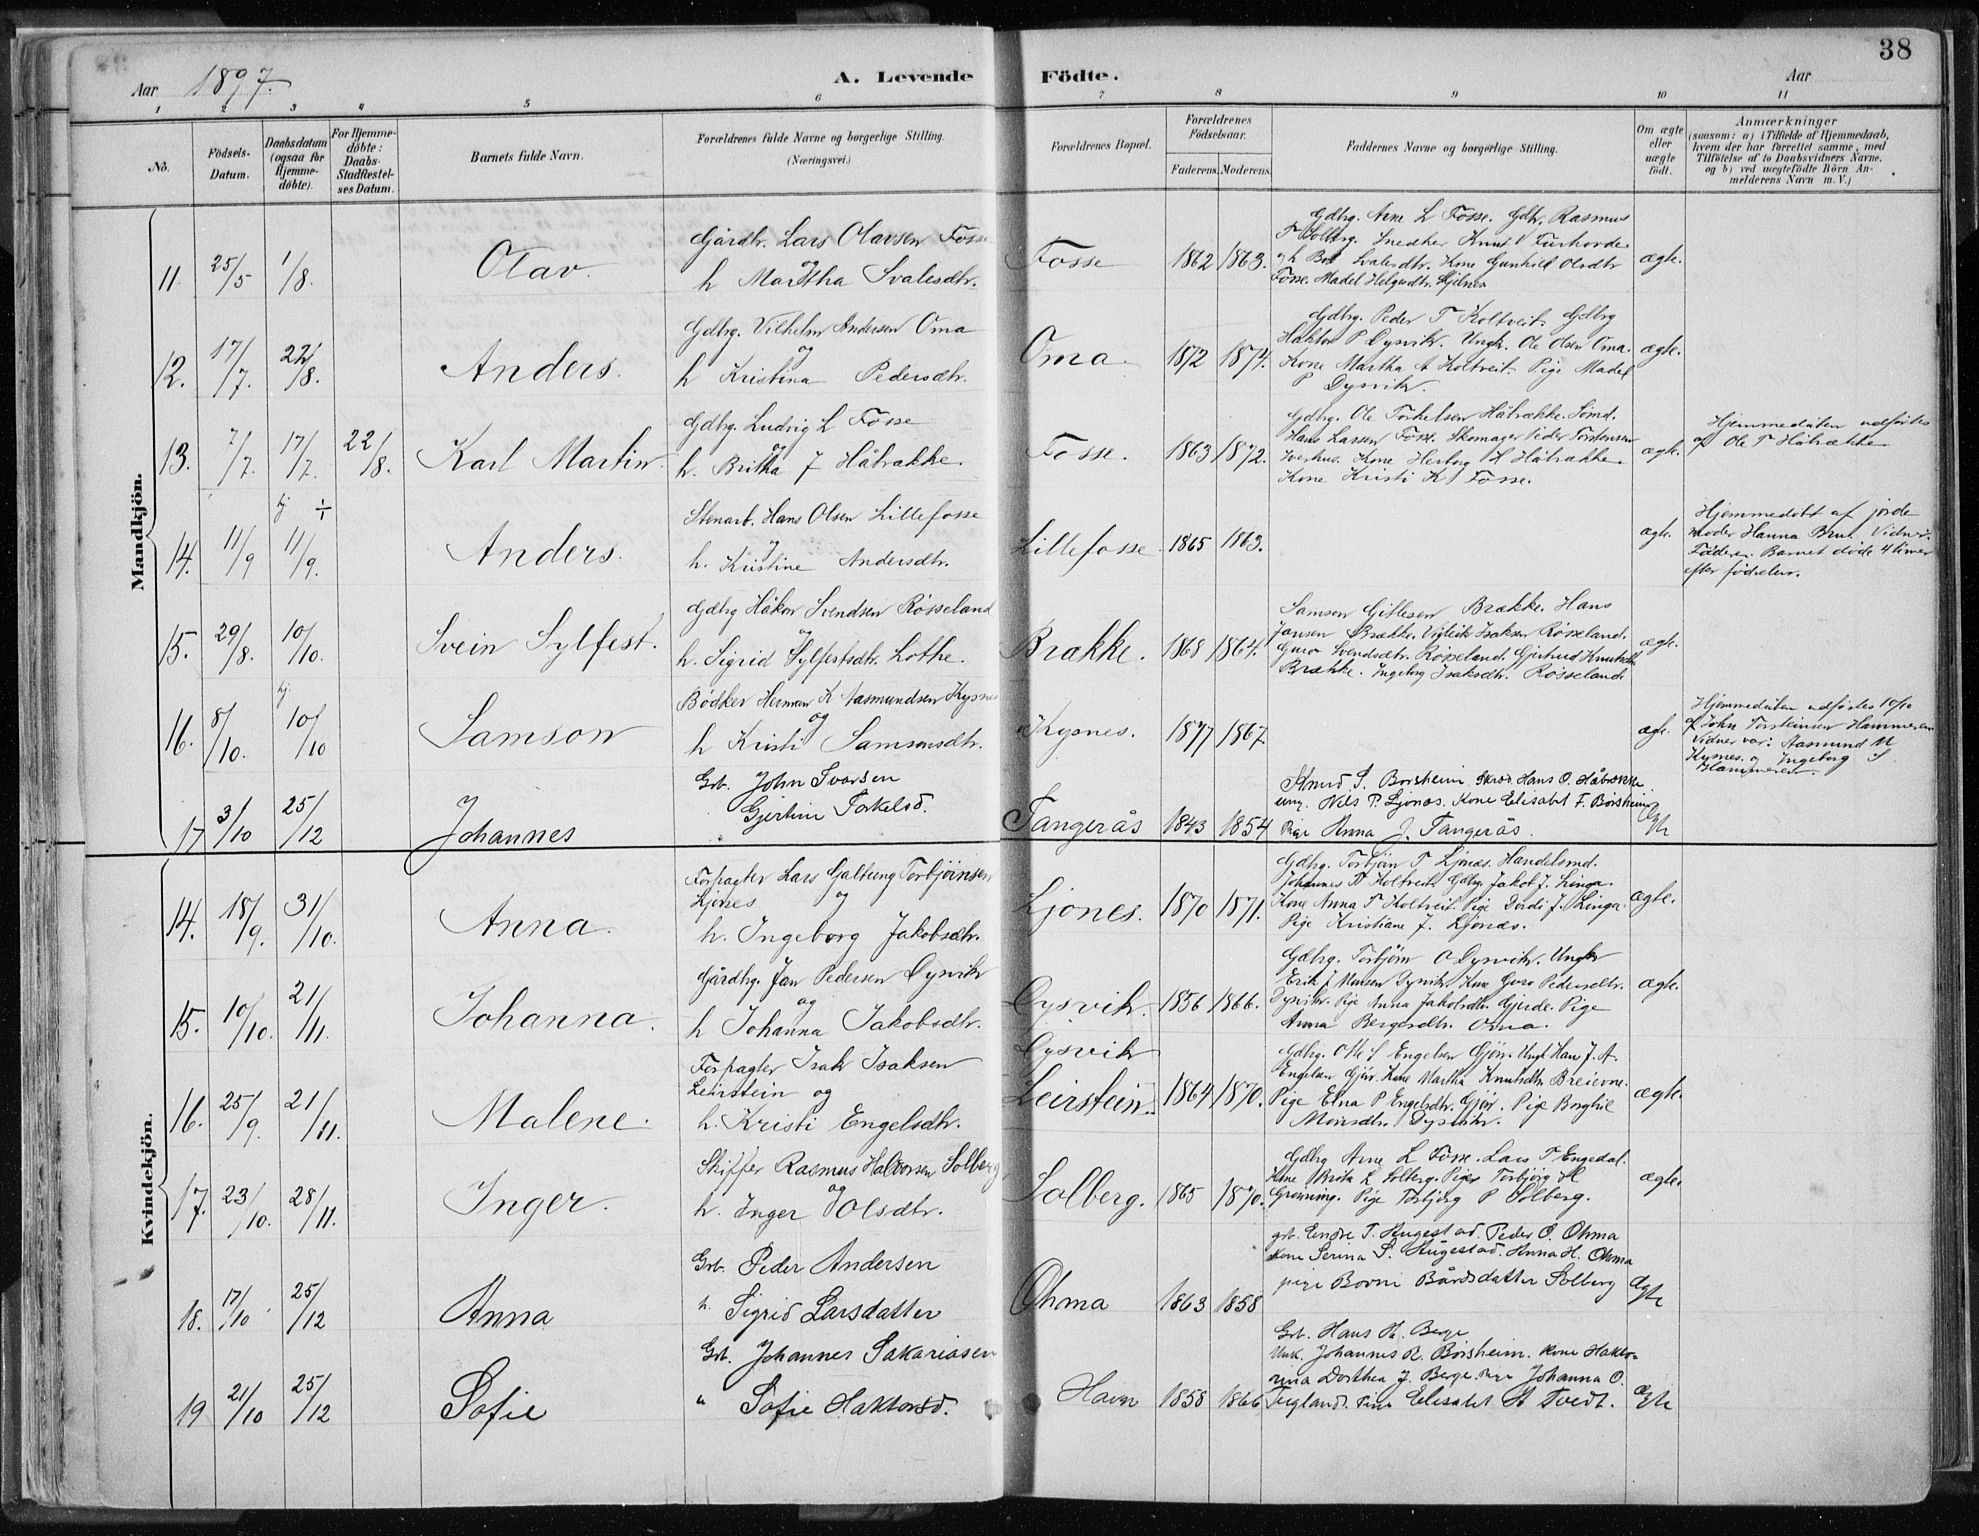 38
Aar 1897. A. Levende Födte. Aar
1 2 3 4 5 6 7 8 9 10 11
No.
Födsels-Datum.
Daabsdatum (ogsaa for Hjemmedöbte).
For Hjemmedöbte: Daabs-Stadfæstelses Datum.
Barnets fulde Navn.
Forældrenes fulde Navne og borgerlige Stilling.
(Næringsvei.)
Forældrenes Bopæl.
Forældrenes Födselsaar.
Faderens. Moderens.
Faddernes Navne og borgerlige Stilling.
Om ægte eller uægte födt.
Anmærkninger
(saasom: a) i Tilfælde af Hjemmedaab,
hvem der har forrettet samme, med
Tilföielse af to Daabsvidners Navne,
og b) ved uægtefödte Börn An-
melderens Navn m. V.)
Mandkjön.
11 25/5 1/8. Olav. Gårdbr. Lars Olavsen Fosse
og
h Martha Svalesdtr. Fosse 1862 1863.
Gdbrg. Arne L Fosse. Gdbr. Rasmus
T Solberg. Snedker Knut Furhovde
Svalesdtr. Kone Gunhild Olsdtr
Fosse. Madel Helgesdtr. ægte.
12. 17/7. 22/8. Anders. Gdbrg. Vilhelm Andersen Oma
og
h Kristina Pedersdtr. Oma 1872 1874.
Gdbrg. Peder T Koltveit. Gdbrg
Haktor P Dysvik. Ungk. Ole Olsen Oma.
Kone Martha A Koltveit. Pige Madel
P Dysvik. ægte.
13. 7/7. 17/7. 22/8. Karl Martin. Gdbrg. Ludvig L Fosse
og
h. Britha J Håbrække. Fosse. 1863 1872.
Gdbrg. Ole Torkelsen Håbrække. Sömd.
Hans Larsen Fosse. Skomager Peder Torstensen
Kone Herborg H Håbrække.
Kone Kristi K Fosse. ægte.
Hjemmedåben udførtes
af Ole T Håbrække
14. 11/9 hj. 11/9. ÷ Anders. Stenarb. Hans Olsen Lillefosse
og
h. Kristine Andersdtr. Lillefosse 1865 1863. ægte.
Hjemmedöbt af jorde
moder Hanna Brun. Vidner.
Faderen. Barnet døde 4 timer
efter fødselen.
15. 29/8. 10/10. Svein Sylfest. Gdbrg Håkon Svendsen Røsseland
og
h. Sigrid Sylfestsdtr. Lothe. Brække. 1868 1864.
Samson Gitlesen Brække. Hans
Jansen Brække. Vigleik Isaksen Røsseland.
Guro Svendsdtr. Røsseland. Gjertrud Knutsdtr
Brække. Ingeborg Isaksdtr. Røsseland. ægte.
16. 8/10. hj. 10/10 Samson Bødker Herman K Aasmundsen Kysnes
og
h Kristi Samsonsdtr. Kysnes. 1877 1867. ægte.
Hjemmedåben udførtes 10/10
af John Torsteinsen Hammeren
Vidner var: Aasmund N
Kysnes og Ingeborg S
Hammeren.
17 3/10 25/12 Johannes Grb. John Ivarsen
Gjertine Torkelsd. Tangerås 1843 1854
Knud S. Borsheim Skrd. Hans O. Håbrække
ung. Nils P. Ljonås. Kone Elisabet F. Borsheim
Pige Anna J. Tangerås. Ægte
Kvindekjön.
14. 18/9. 31/10. Anna. Forpagter Lars Galtung Torbjörnsen
Ljones og
h. Ingeborg Jakobsdtr. Ljones. 1870 1871.
Gdbrg. Torbjörn T Ljones. Handelsmd.
Johannes Koltveit. Gdbrg. Jakob J. Linga.
Kone Anna T Koltveit. Pige Dordi J. Linga
Pige Kristiane J. Ljones. ægte.
15. 10/10. 21/11. Johanna. Gårdbrg. Jan Pedersen Dysvik
og
h Johanna Jakobsdtr. Dysvik. 1856 1866.
Gdbrg. Torbjörn O Dysvik. Ungkr
Erik J Monsen Dysvik. Kone Guro Pedersdtr.
Dysvik. Pige Anna Jakobsdtr. Gjerde. Pige
Anna Bergesdtr. Oma. ægte.
16. 25/9. 21/11. Malene. Forpagter Isak Isaksen
Leirstein og
h. Kristi Engelsdtr. Dysvik
Leirstein. 1864 1870.
Gdbrg. Engelsen Gjøn. Ungk Hans J. A.
Engelsen Gjøn. Kone Martha Knutsdtr Breievne.
Pige Elna P Engelsdtr. Gjøn. Pige Borghild
Monsdtr. Dysvik. ægte.
17. 23/10. 28/11. Inger. Skipper Rasmus Halvorsen Solberg
og
h. Inger Olsdtr. Solberg. 1865 1870.
Gdbrg Arne L Fosse. Lars T Engedal.
Kone Brita L Solberg. Pige Torbjörg H
Grøning. Pige Torbjörg P Solberg. ægte.
18. 17/10 25/12 Anna Grb. Peder Andersen
h. Sigrid Larsdatter Ohma 1863 1858
grb. Endre T. Augestad. Peder O. Ohma
kone Serina S. Augestad. Anna H. Ohma
pige Bovni Bårdsdatter Solberg Ægte
19 21/10 25/12 Sofie Grb. Johannes Sakariasen
" Sofie Haktorsd. Havn 1858 1866
Grb. Hans H. Berge
Unk. Johannes R. Borsheim. Kone Hakto-
rina Dorthea J. Berge. pige Johanna O.
Teigland. Pige Elisabet A Tvedt. Ægte